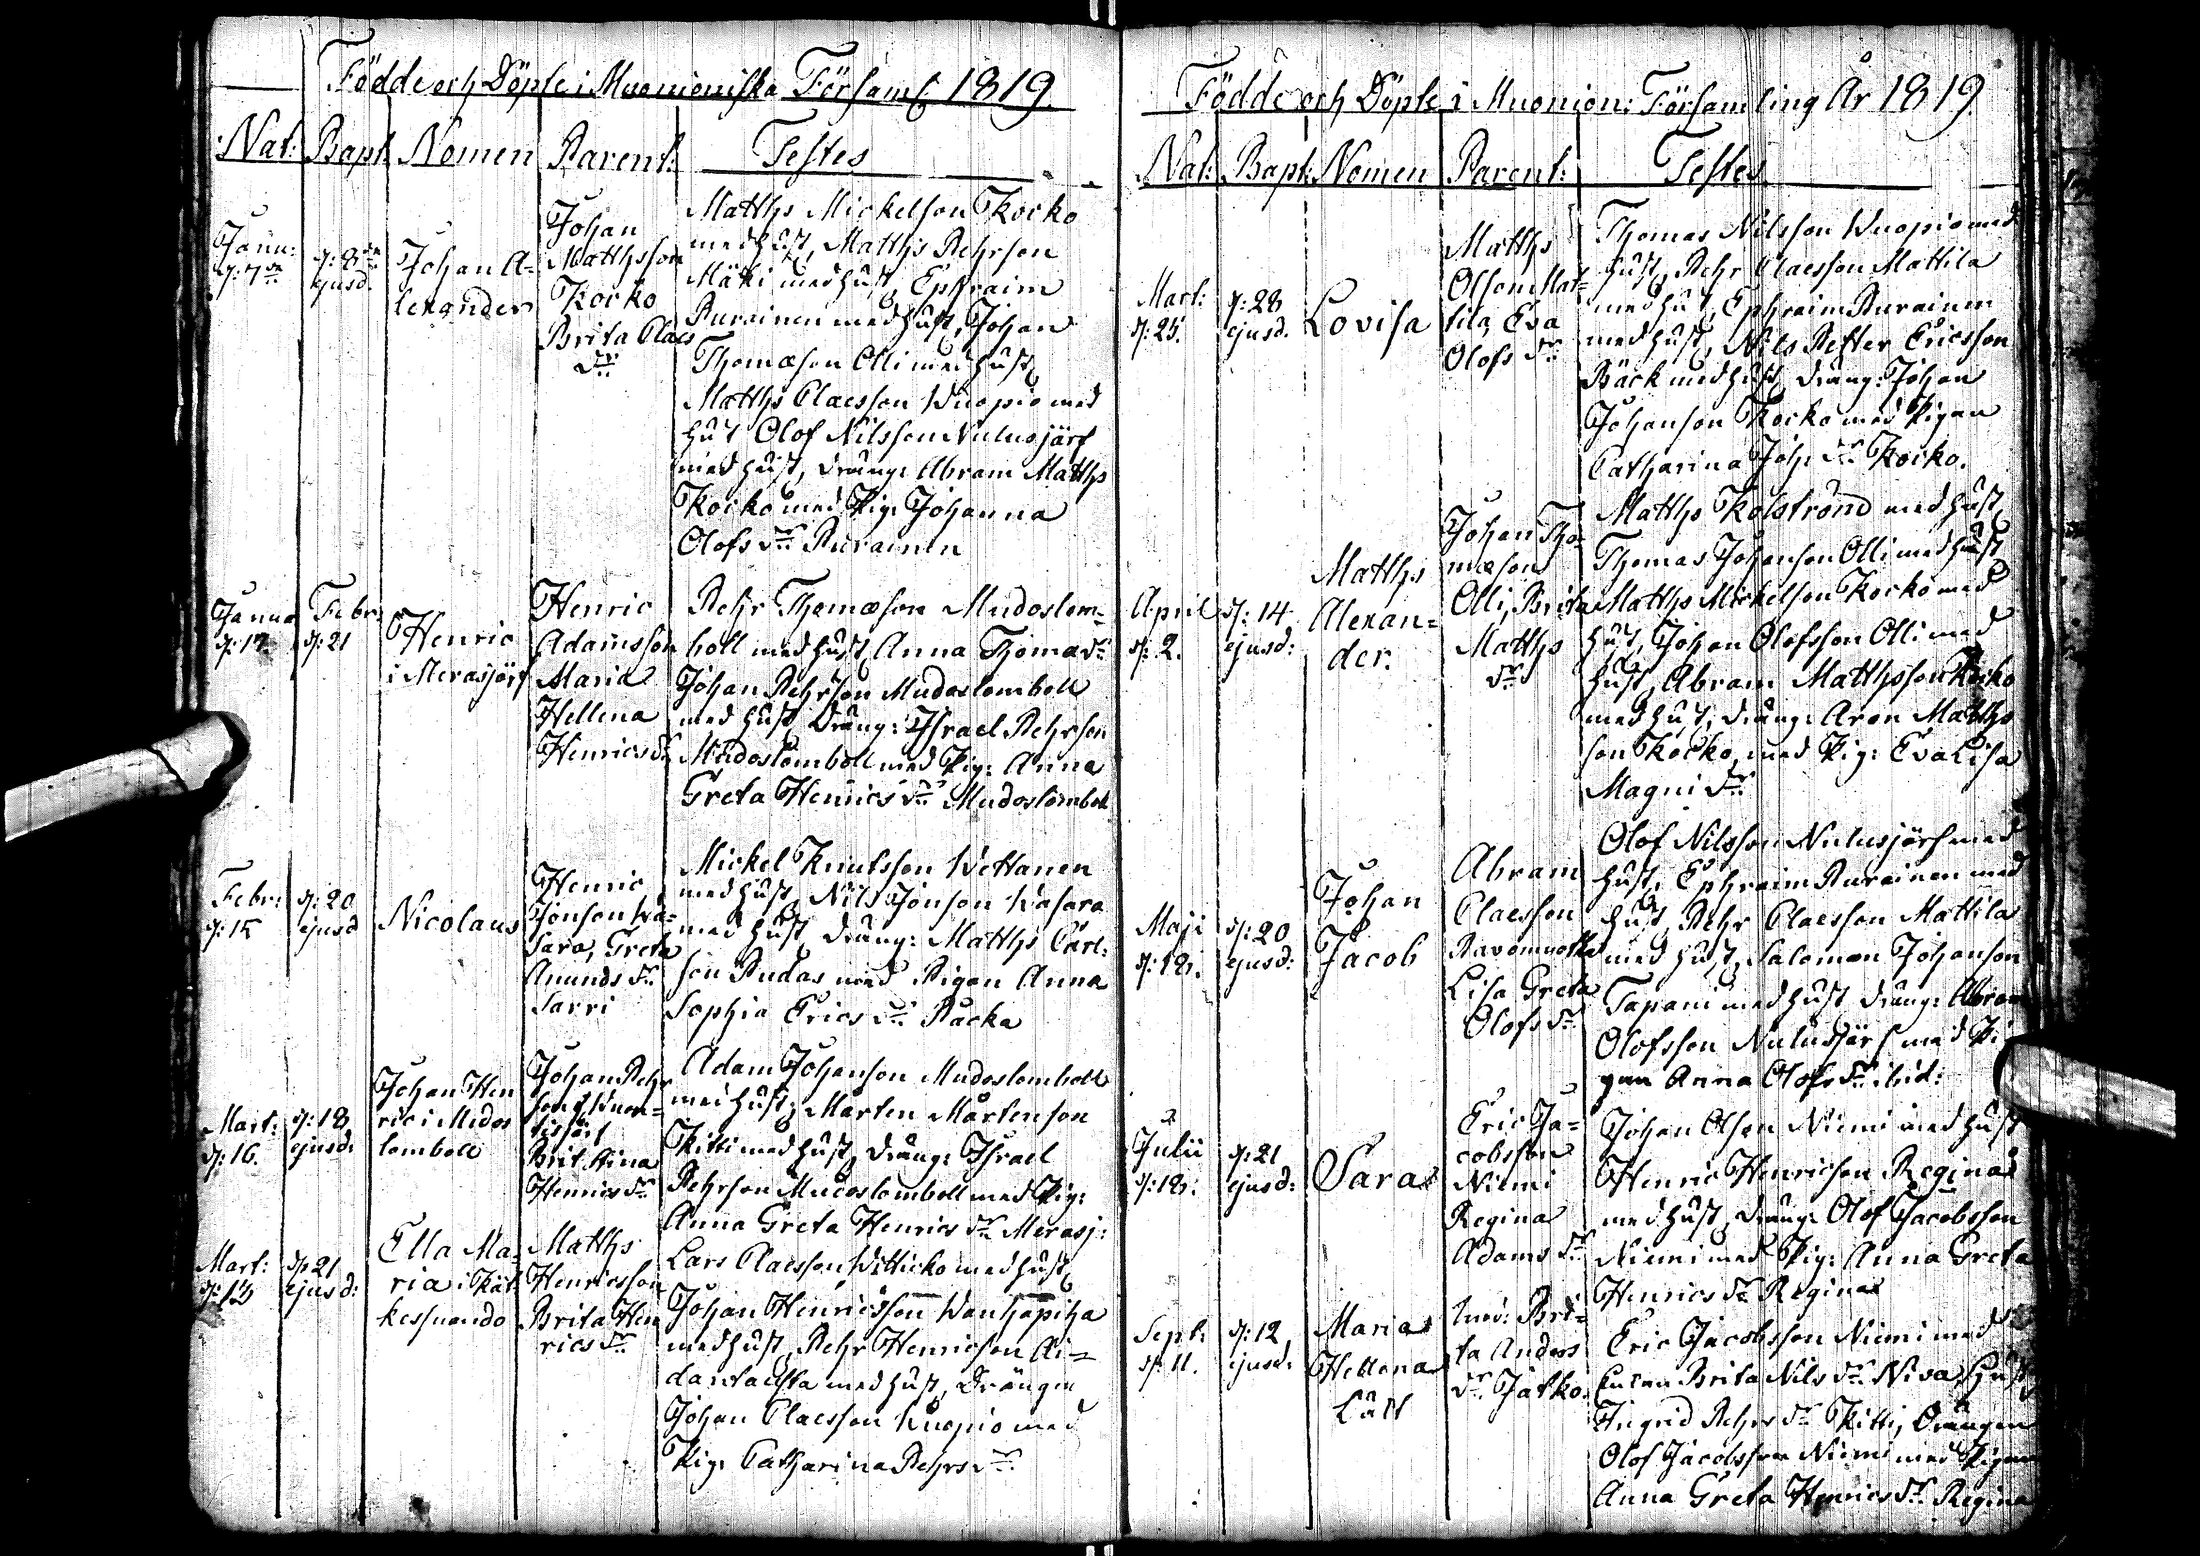 Födde och Döpte i Muonioniska Församl 1819
Nat: Bapt. Nomen Parent: Testes
Janu: d: 7de
d: 8de ejusd.
Johan A=
lexander
Johan
Matthsson
Kocko
Brita Claes
dr
Matths Mickelson Kocko
med Hust, Matths Pehrson
Mäki med Hust, Ephraim
Rurainen med Hust, Johan
Thomæson Olli med Hust,
Matths Claesson Kuopio med
Hust Olof Nilsson Nulusjärf
med Hust, dräng: Abram Matths
Kocko med Pig: Johanna
Olofs dr Rurainen
Janua
d: 17.
Febr:
d: 21
Henric
i Merasjärf
Henric
Adamsson
Maria
Hellena
Henrics dr
Pehr Thomæson Mudoslom=
boll med Hust, Anna Thomæ dr
Johan Pehrson Mudoslomboll
med Hust, Dräng: Israel Pehrson
Mudoslomboll med Pig: Anna
Greta Henrics dr Mudoslomboll
Febr:
d: 15
d: 20
ejusd
Nicolaus
Henric
Jönson Wa=
sara, Greta
Amunds dr
Sarri
Mickel Knutsson Wettanen
med Hust, Nils Jönson Wasara
med Hust, dräng: Matths Carl:
son Rudas med Pigan Anna
Sophia Erics dr Packa
Mart:
d: 16.
d: 18
ejusd:
Johan Hen
ric i Mudos
lomboll
Johan Pehr
son
Brit Stina
Henrics dr
Adam Johanson Mudoslomboll
med Hust, Mårten Mårtenson
Kitti med Hust, dräng: Israel
Pehrson Mudoslomboll med Pig:
Anna Greta Henrics dr Merasj:
Mart:
d: 13
d: 21
ejusd:
Ella Ma=
ria i Kät
kesuando
Matths
Henricsson
Brita Hen
rics dr
Lars Claesson Witticko med Hust,
Johan Henricsson Wanhapiha
med Hust, Pehr Henricson Ai=
dantausta med Hust, Drängen
Johan Claesson Kuopio med
Pig: Catharina Pehrs dr
Födde och Döpte i Muonion: Församling År 1819.
Nat: Bapt: Nomen Parent: Testes
Mart:
d: 25.
d: 28
ejusd.
Lovisa
Matths
Olson Mat=
tila, Eva
Olofs dr
Thomas Nilsson Kuopio med
Hust, Pehr Claesson Mattila
med Hust, Ephraim Rurainen
med Hust, Nils Petter Ericsson
Bäck med Hust, dräng: Johan
Johanson Kocko med Pigan
Catharina Joh: dr Kocko.
April
d: 2.
d: 14
ejusd:
Matths
Alexan=
der.
Johan Tho
mæson
Olli, Brita
Matths
dr
Matths Kolström med Hust,
Thomas Johanson Olli med Hust,
Matths Mickelson Kocko med
Hust, Johan Olofsson Olli med
Hust, Abram Matthsson Kocko
med Hust, dräng: Aron Matths
son Kocko, med Pig: Eva Lisa
Magni dr
Maji
d: 18.
d: 20
ejusd:
Johan
Jacob
Abram
Claesson
Ravomuotka
Lisa Greta
Olofs dr
Olof Nilsson Nulusjärf med
Hust, Ephraim Rurainen med
Hust, Pehr Claesson Mattila
med Hust, Salomon Johanson
Tapani med Hust dräng: Abram
Olofsson Nulusjärf med Pi
gan Anna Olofs dr ibid:
Julii
d: 18.
d: 21
ejusd:
Sara
Eric Ja=
cobsson
Niemi
Regina
Adams dr
Johan Olson Niemi med Hust
Henric Henricson Regina
med Hust, dräng: Olof Jacobsson
Niemi med Pig: Anna Greta
Henrics dr Regina
Sept:
d: 11.
d: 12
ejusd:
Maria
Hellena
Bri=
ta Anders
dr Jatko.
Eric Jacobsson Niemi med
Enkan Brita Nils dr Niva, Hust
Ingrid Pehrs dr Kitti, Drängen
Olof Jacobsson Niemi med Pigan
Anna Greta Henrics dr Regina